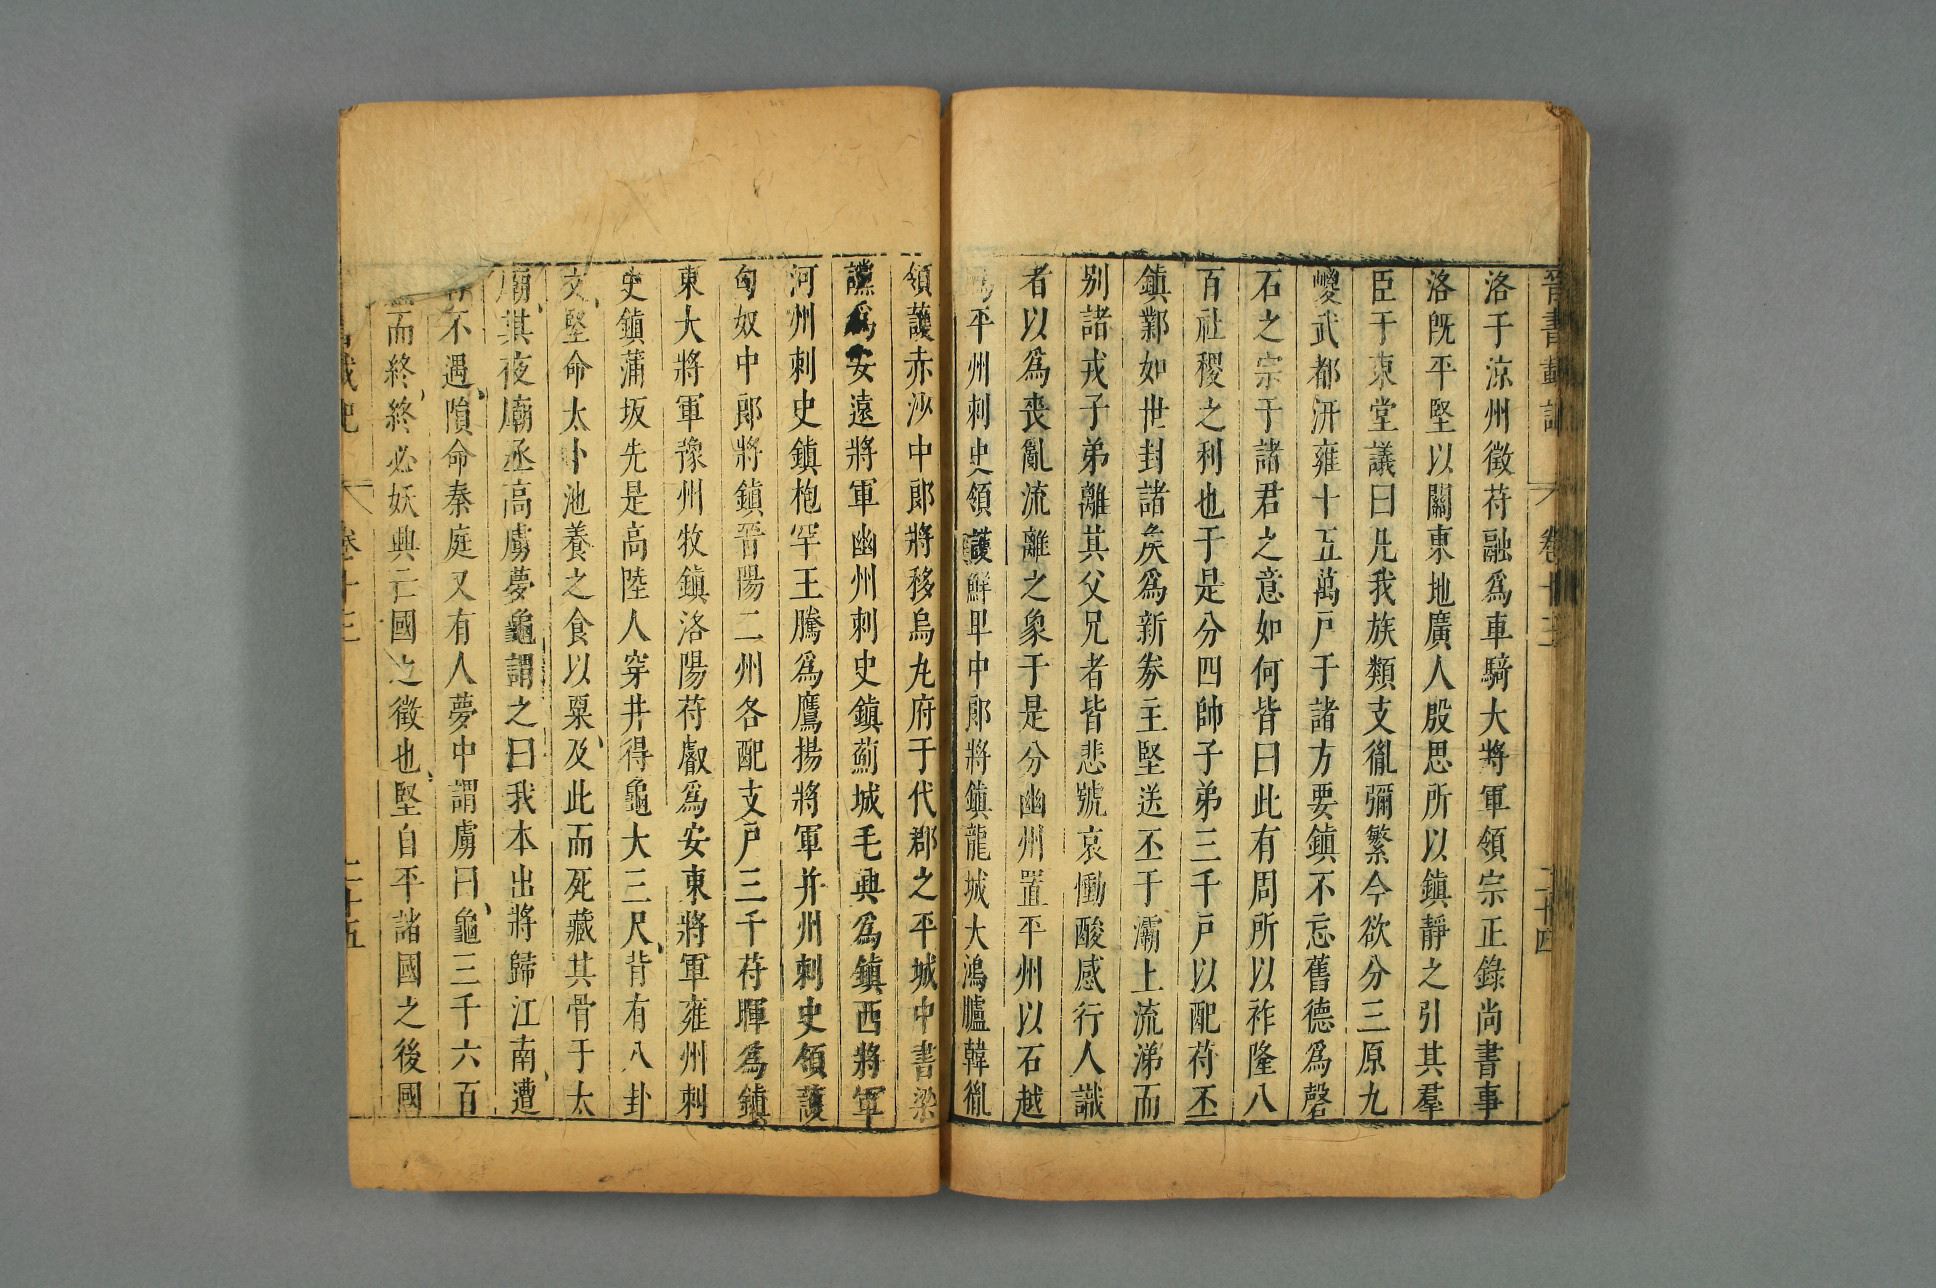 晉書載記 卷十三 二十四
洛于涼州徵苻融爲車騎大將軍領宗正錄尚書事
洛旣平堅以關東地廣人殷思所以鎮靜之引其羣
臣于東堂議曰凡我族類支胤彌繁今欲分三原九
嵕武都汧雍十五萬戶于諸方要鎮不忘舊德爲磬
石之宗于諸君之意如何皆曰此有周所以祚隆八
百社稷之利也于是分四帥子弟三千戶以配苻丕
鎮鄴如世封諸矦爲新劵主堅送丕于灞上流涕而
別諸戎子弟離其父兄者皆悲號哀慟酸感行人識
者以爲喪亂流離之象于是分幽州置平州以石越
爲平州刺史領護鮮卑中郎將鎮龍城大鴻臚韓胤
領護赤沙中郎將移烏丸府于代郡之平城中書梁
讜爲安遠將軍幽州刺史鎮薊城毛興爲鎮西將軍
河州刺史鎮枹罕王騰爲鷹揚將軍并州刺史領護
匈奴中郎將鎮晉陽二州各配支戶三千苻暉爲鎮
東大將軍豫州牧鎮洛陽苻叡爲安東將軍雍州刺
史鎮蒲坂先是高陸人穿井得龜大三尺背有八卦
文堅命太卜池養之食以粟及此而死藏其骨于太
廟其夜廟丞高虜夢龜謂之曰我本出將歸江南遭
不遇隕命秦庭又有人夢中謂虜曰龜三千六百
而終終必妖興亡國之徵也堅自平諸國之後國
載記 卷十三 二十五